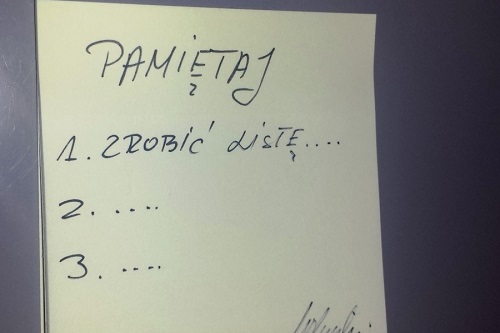 PAMIĘTAJ
1. ZROBIĆ LISTĘ....
2. ....
3. ....